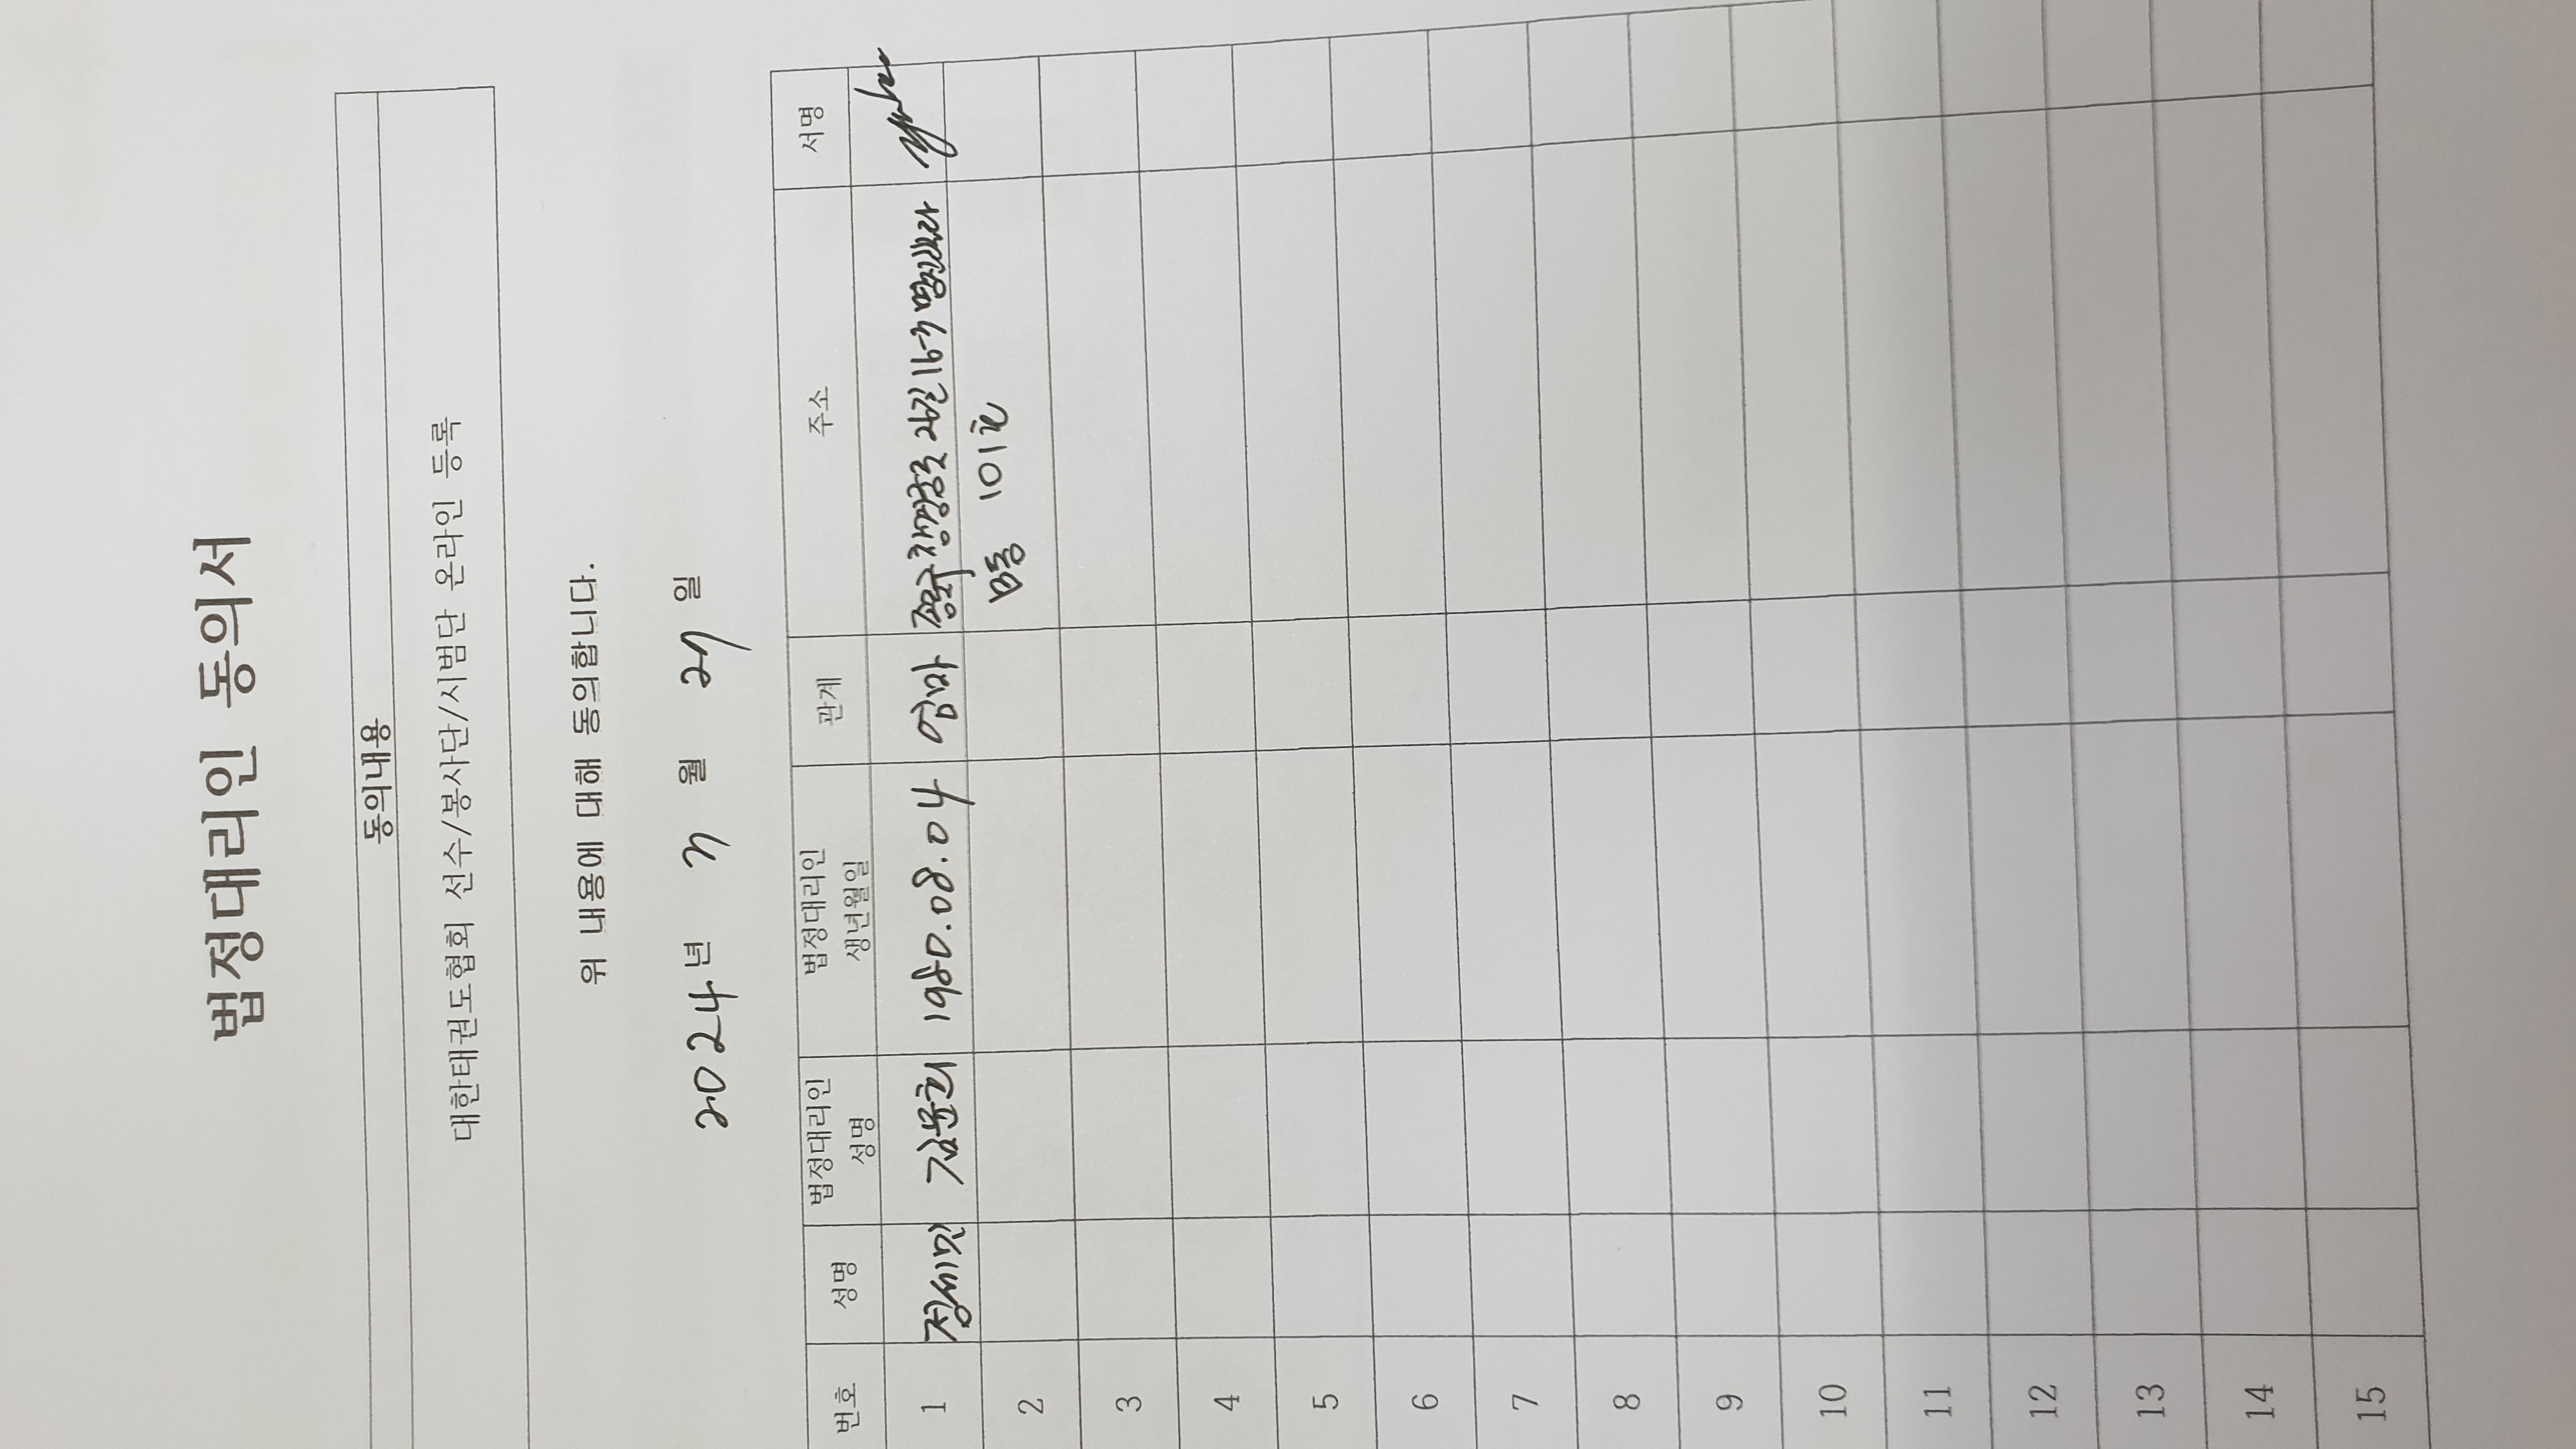 법정대리인 동의서
동의내용
대한태권도협회 선수/봉사단/시범단 온라인 등록
위 내용에 대해 동의합니다.
2024년 7월 27일
번호 성명 법정대리인 성명 법정대리인 생년월일 관계 주소 서명
1 정세빈 김윤희 1980.08.04 엄마 종로구 자하문로 16-3
B동 101호
2
3
4
5
6
7
8
9
10
11
12
13
14
15